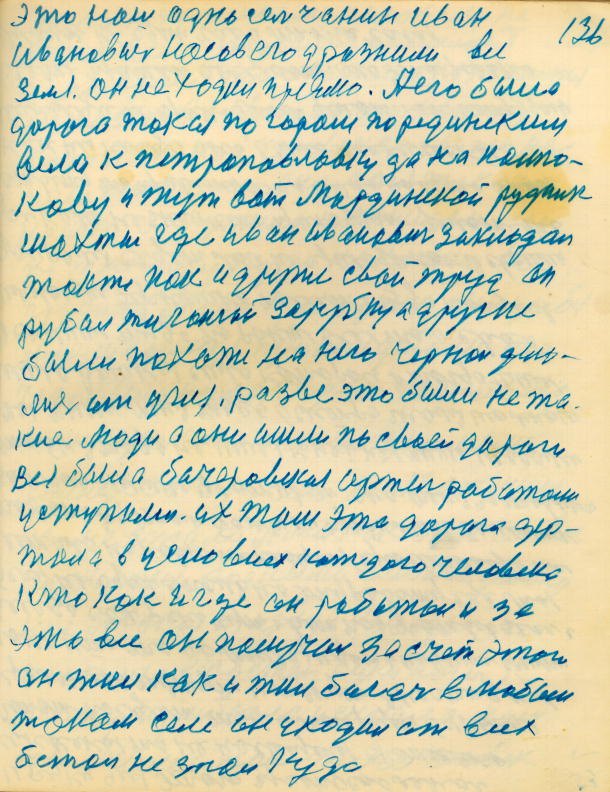 это наш односелчанин Иван
136
Иванович Носов его дразнили все
Земл. он не ходил прямо. А его была
дорога такая по горам по
вела к петропавловку да на
кову и тут вот Мардинской рудник
шахты где Иван Иванович закладал
тоже как и другие свой труд он
рубал зарубку а другие
были похожи на него черной
от угля, разве это были не та-
кие люди а они шли по своей дороги
вся была бачеровская артел работали
уступами. их там эта дорога дер-
жала в условиях каждого человека
Кто как и где он работал и за
это все он получал За счет этого
он жил как и жил багач в любом
таком селе он уходил от всех
бежал не знал куда